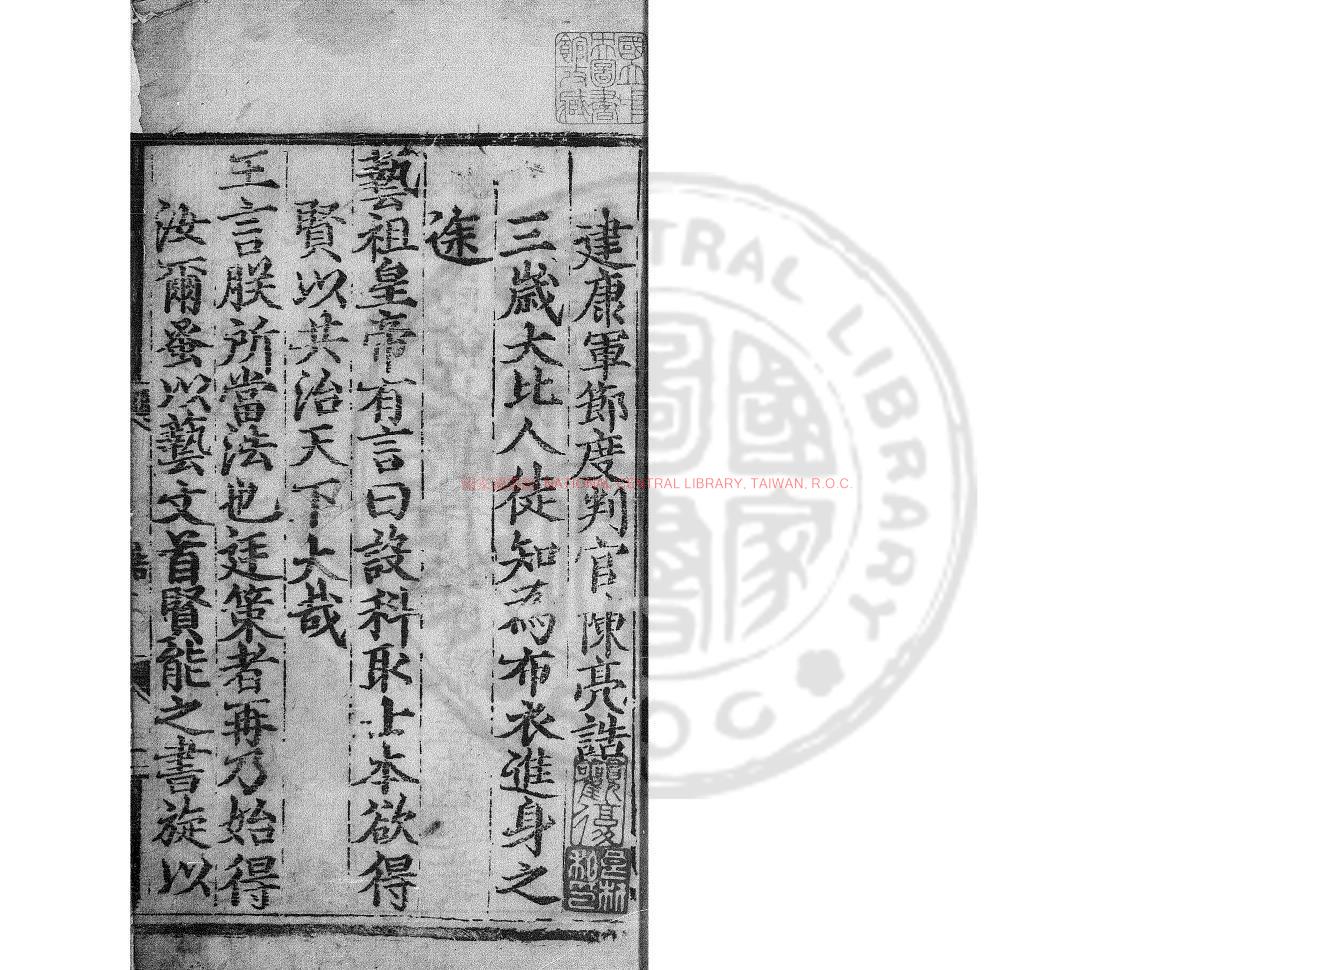 建康軍節度判官陳亮誥
三歲大比人徒知為布衣進身之
途
藝祖皇帝有言曰設科取士本欲得
賢以共治天下大哉
王言朕所當法也廷策者再乃始得
汝爾蚤以藝文首賢能之書旋以
國立中央圖書館收藏
NATIONAL CENTRAL LIBRARY, TAIWAN, R.O.C.
CENTRAL LIBRARY